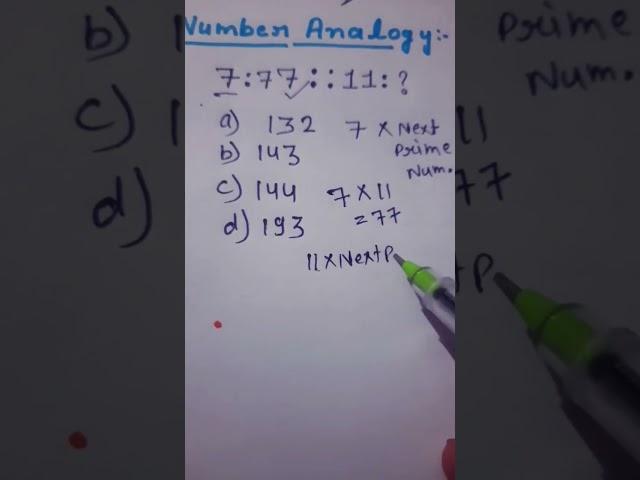 Number Analogy:-
7:77::11:?
a) 132
b) 143
c) 144
d) 193
7 x Next
Prime
Num.
7 x 11
= 77
11 x Next P